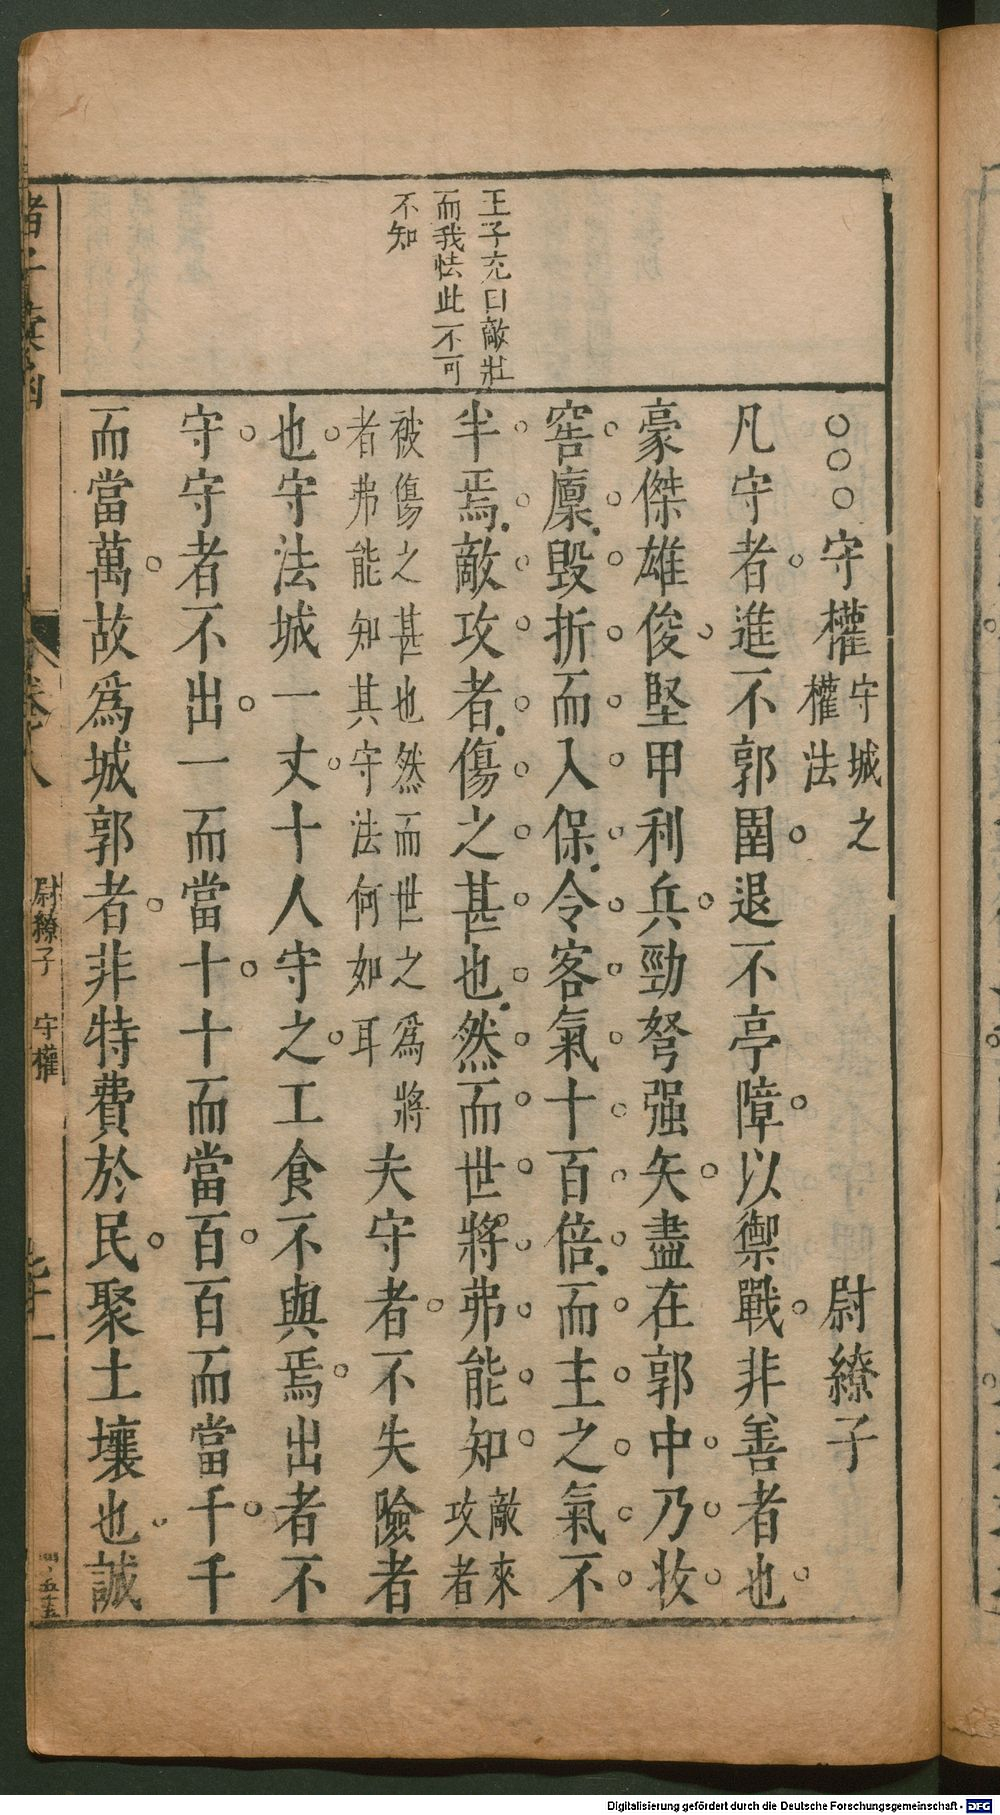 王子充曰敵壯
而我怯此不可
不知
○○○守權守城之權法 尉繚子
凡守者進不郭圉退不亭障以禦戰非善者也
豪傑雄俊堅甲利兵勁弩强矢盡在郭中乃收
窖廩毀折而入保令客氣十百倍而主之氣不
半焉敵攻者傷之甚也然而世將弗能知敵來攻者
被傷之甚也然而世之爲將者弗能知其守法何如耳夫守者不失險者
也守法城一丈十人守之工食不與焉出者不
守守者不出一而當十十而當百百而當千千
而當萬故爲城郭者非特費於民聚土壤也誠
尉繚子 守權
Digitalisierung gefördert durch die Deutsche Forschungsgemeinschaft - DFG